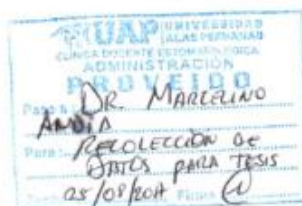 UAP UNIVERSIDAD
ALAS PERUANAS
CLINICA DOCENTE ESTOMATOLOGICA
ADMINISTRACIÓN
PROVEIDO
Pase a DR. MARCELINO
ANDIA
Para: RECOLECCIÓN DE
DATOS PARA TESIS
Firma